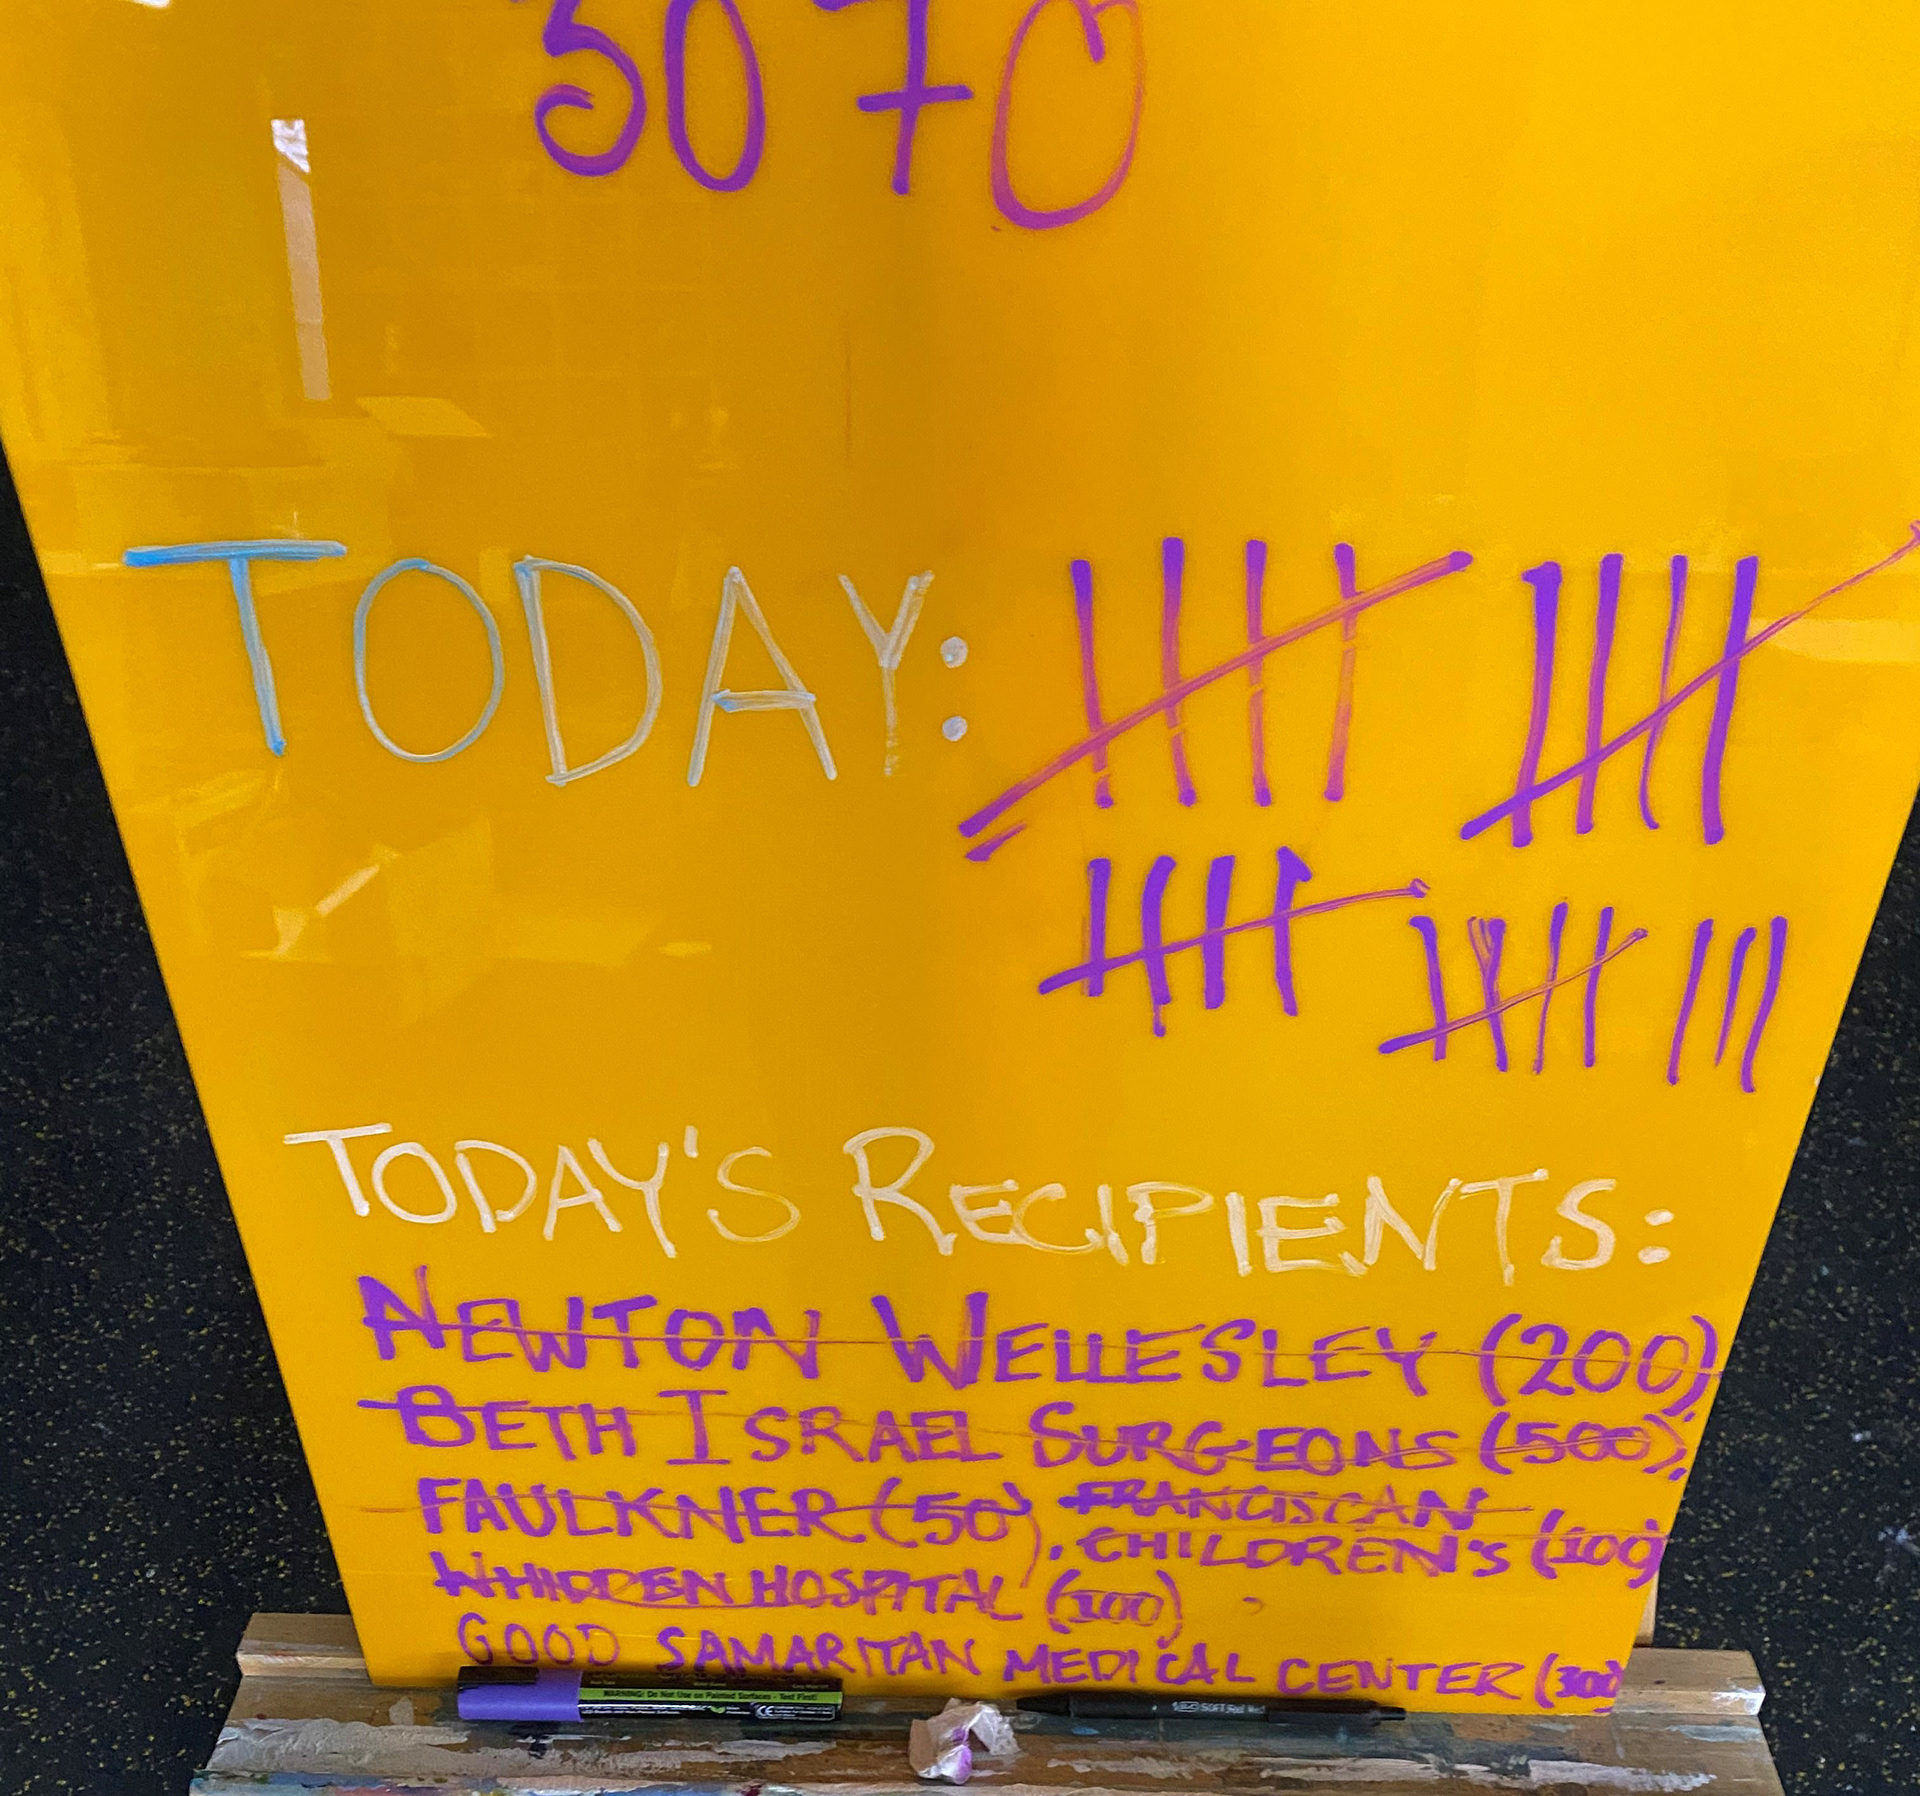 3070
TODAY:
TODAY'S RECIPIENTS:
NEWTON WELLESLEY (200)
BETH ISRAEL SURGEONS (500),
FAULKNER (50), FRANCISCAN
CHILDREN'S (100)
WHIDDEN HOSPITAL (100)
GOOD SAMARITAN MEDICAL CENTER (300)
WARNING: Do Not Use on Painted Surfaces - Test First!
CE